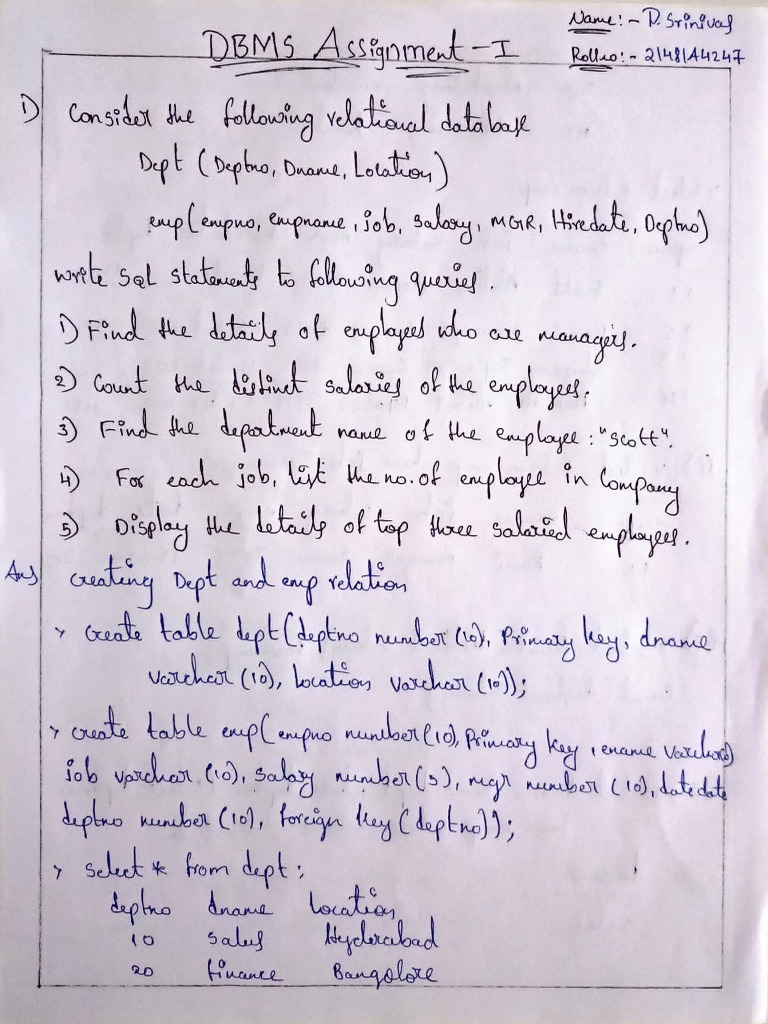 Name:- D. Srinivas
DBMS Assignment - I
Rollno:- 21481A4247
1) Consider the following relational database
Dept (Deptno, Dname, Location)
emp(empno, empname, job, salary, MGR, Hiredate, Deptno)
write sql statements to following queries.
1) Find the details of employees who are managers.
2) Count the distinct salaries of the employees.
3) Find the department name of the employee: "Scott".
4) For each job, list the no. of employee in Company
5) Display the details of top three salaried employees.
Ans creating Dept and emp relation
> create table dept(deptno number(10), Primary key, dname
varchar(10), location varchar(10));
> create table emp(empno number(10), Primary key, ename varchar(10)
job varchar(10), salary number(5), mgr number(10), date date
deptno number(10), foreign key(deptno));
> select * from dept;
deptno dname location
10 sales Hyderabad
20 finance Bangolore